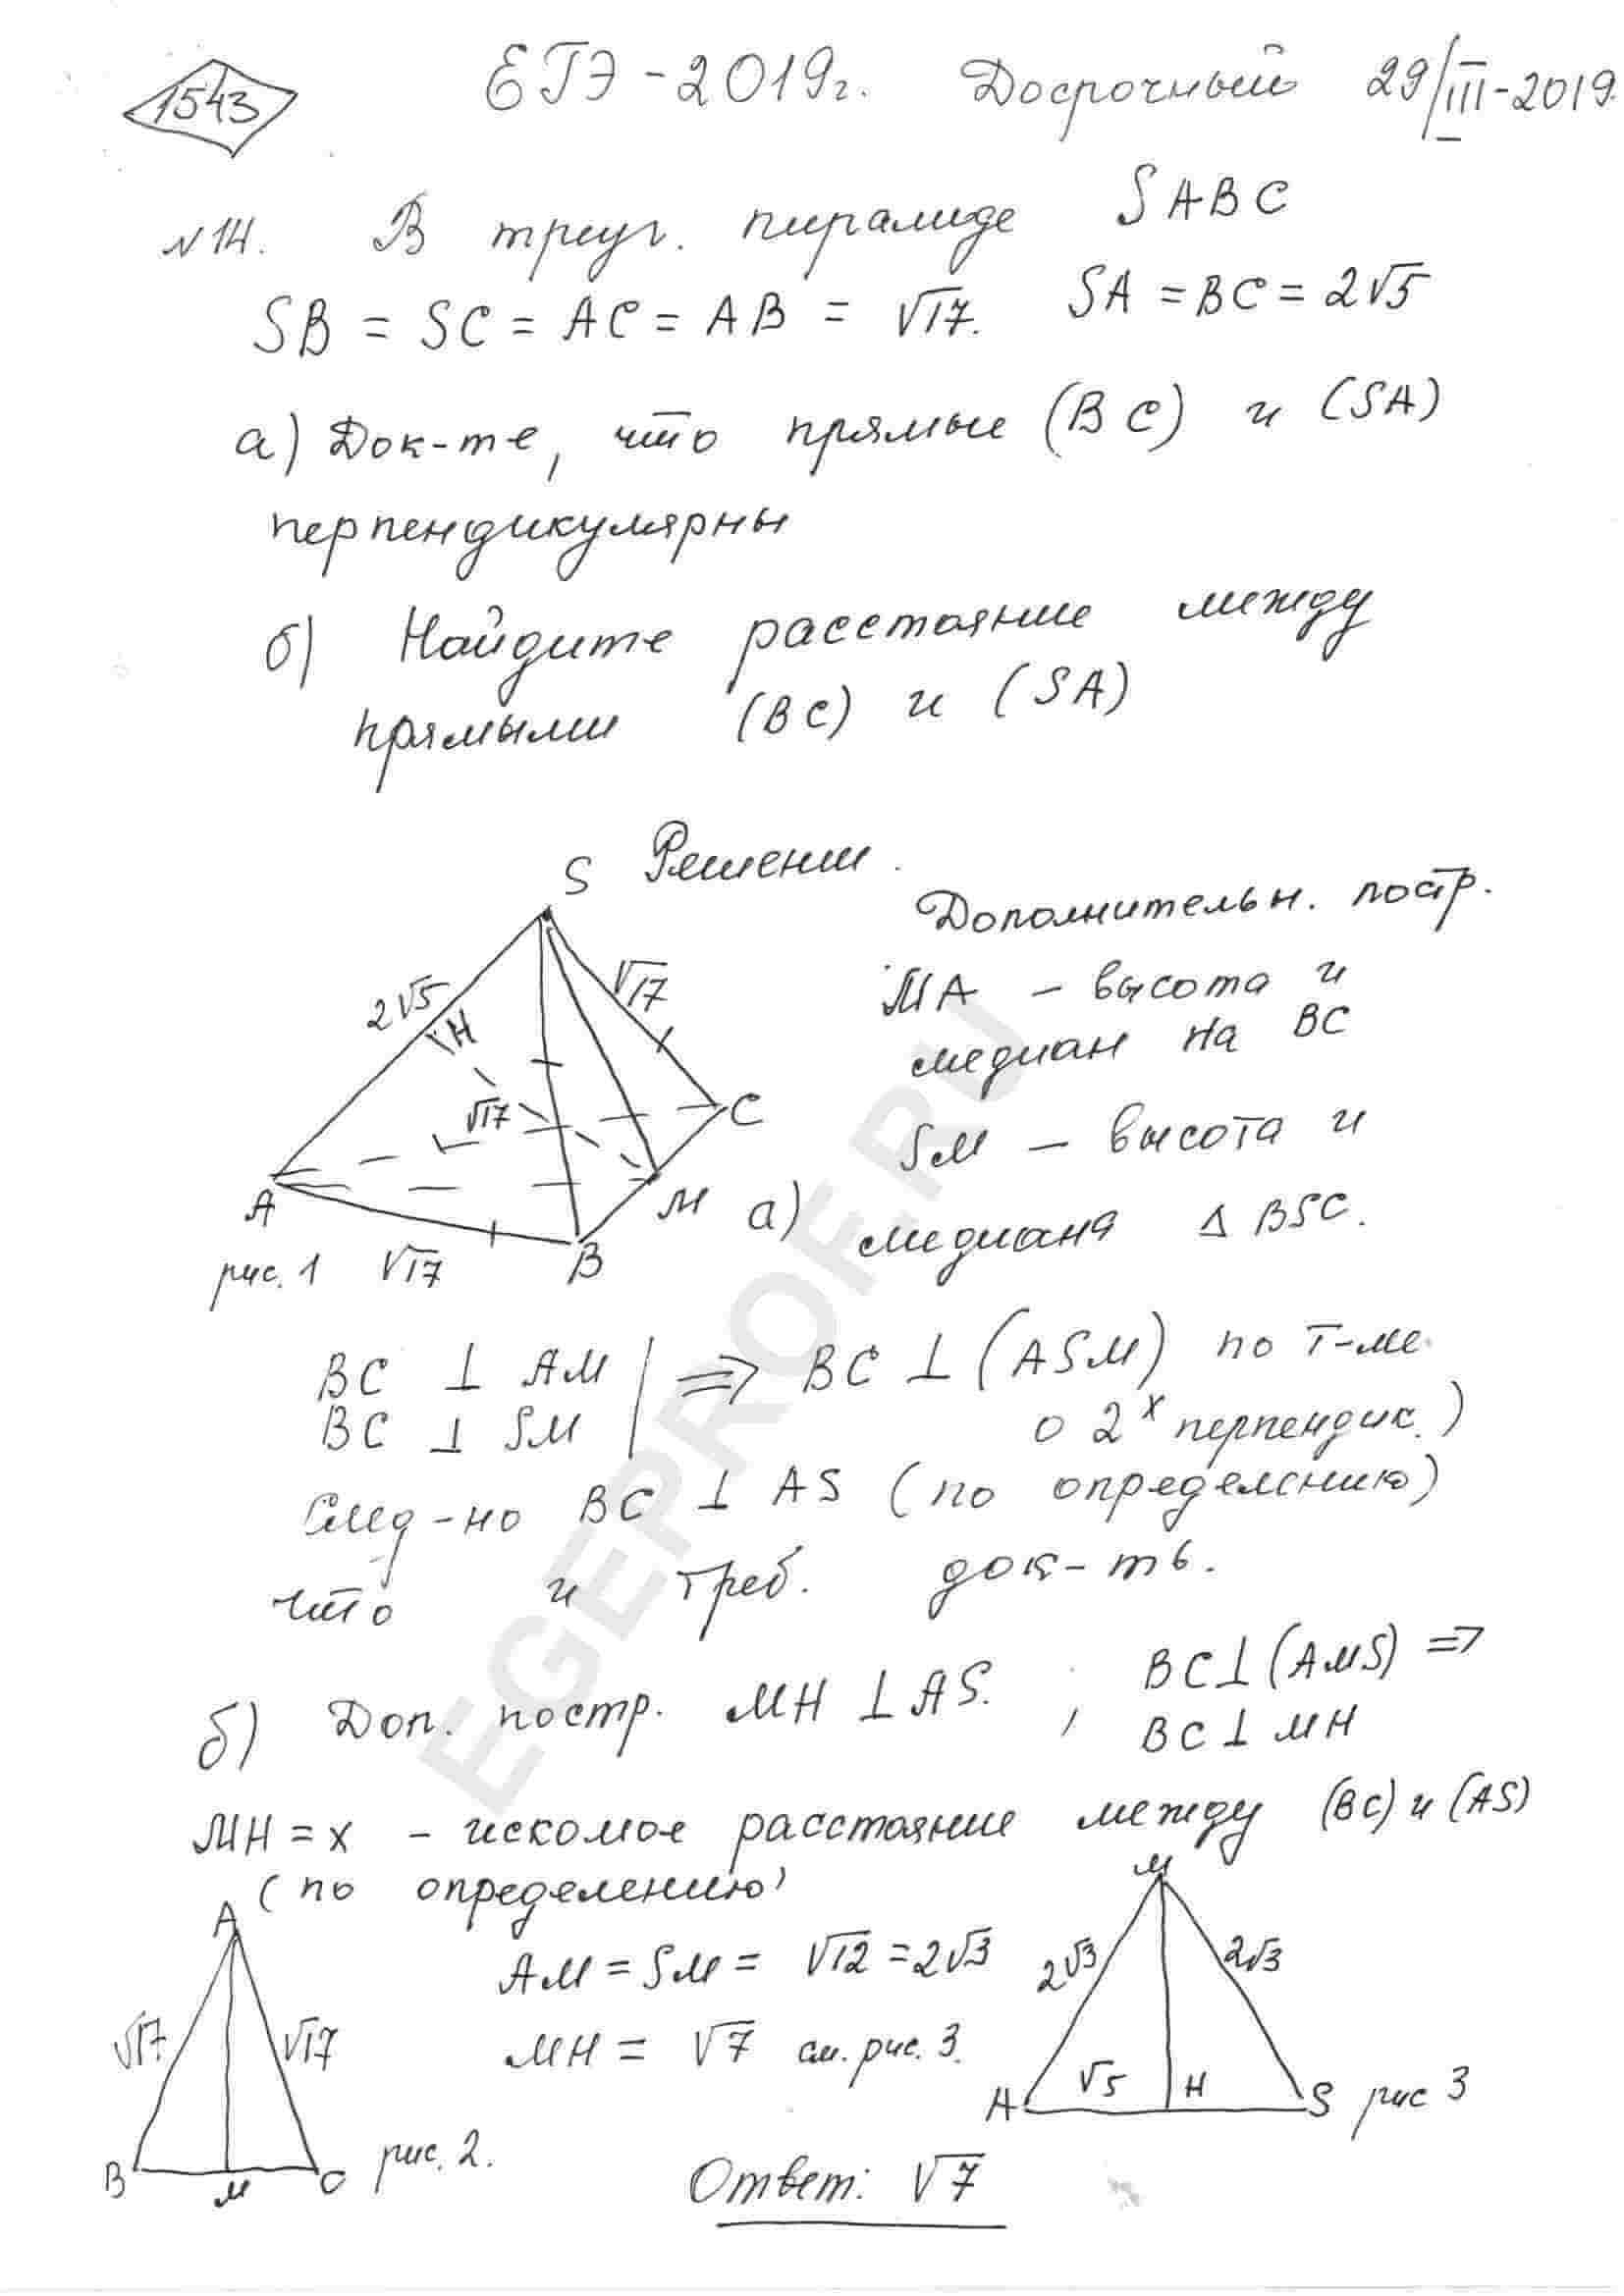 1543
ЕГЭ - 2019г. Досрочный 29/III-2019.
№14. В треуг. пирамиде SABC
SB = SC = AC = AB = √17. SA = BC = 2√5
а) Док-те, что прямые (BC) и (SA)
перпендикулярны
б) Найдите расстояние между
прямыми (BC) и (SA)
Решении.
S
Дополнительн. постр.
2√5
H
√17
√17
A
B
C
M
√17
рис. 1
MA - высота и
медиан на BC
SM - высота и
а) медиана Δ BSC.
BC ⊥ AM | => BC ⊥ (ASM) по т-ме
BC ⊥ SM | о 2х перпендик.)
След-но BC ⊥ AS (по определению)
что и треб. док-ть.
б) Доп. постр. MH ⊥ AS. ; BC ⊥ (AMS) =>
BC ⊥ MH
MH = x - искомое расстояние между (BC) и (AS)
(по определению)
A
√17
√17
B
M
C
рис. 2.
AM = SM = √12 = 2√3
MH = √7 см. рис. 3.
M
2√3
2√3
A
√5
H
S
рис 3
Ответ: √7
EGEPROF.RU